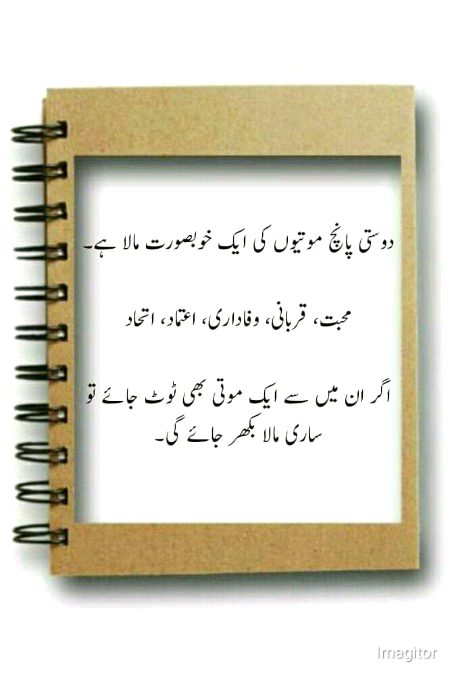 دوستی پانچ موتیوں کی ایک خوبصورت مالا ہے۔
محبت، قربانی، وفاداری، اعتماد، اتحاد
اگر ان میں سے ایک موتی بھی ٹوٹ جائے تو
ساری مالا بکھر جائے گی۔
Imagitor